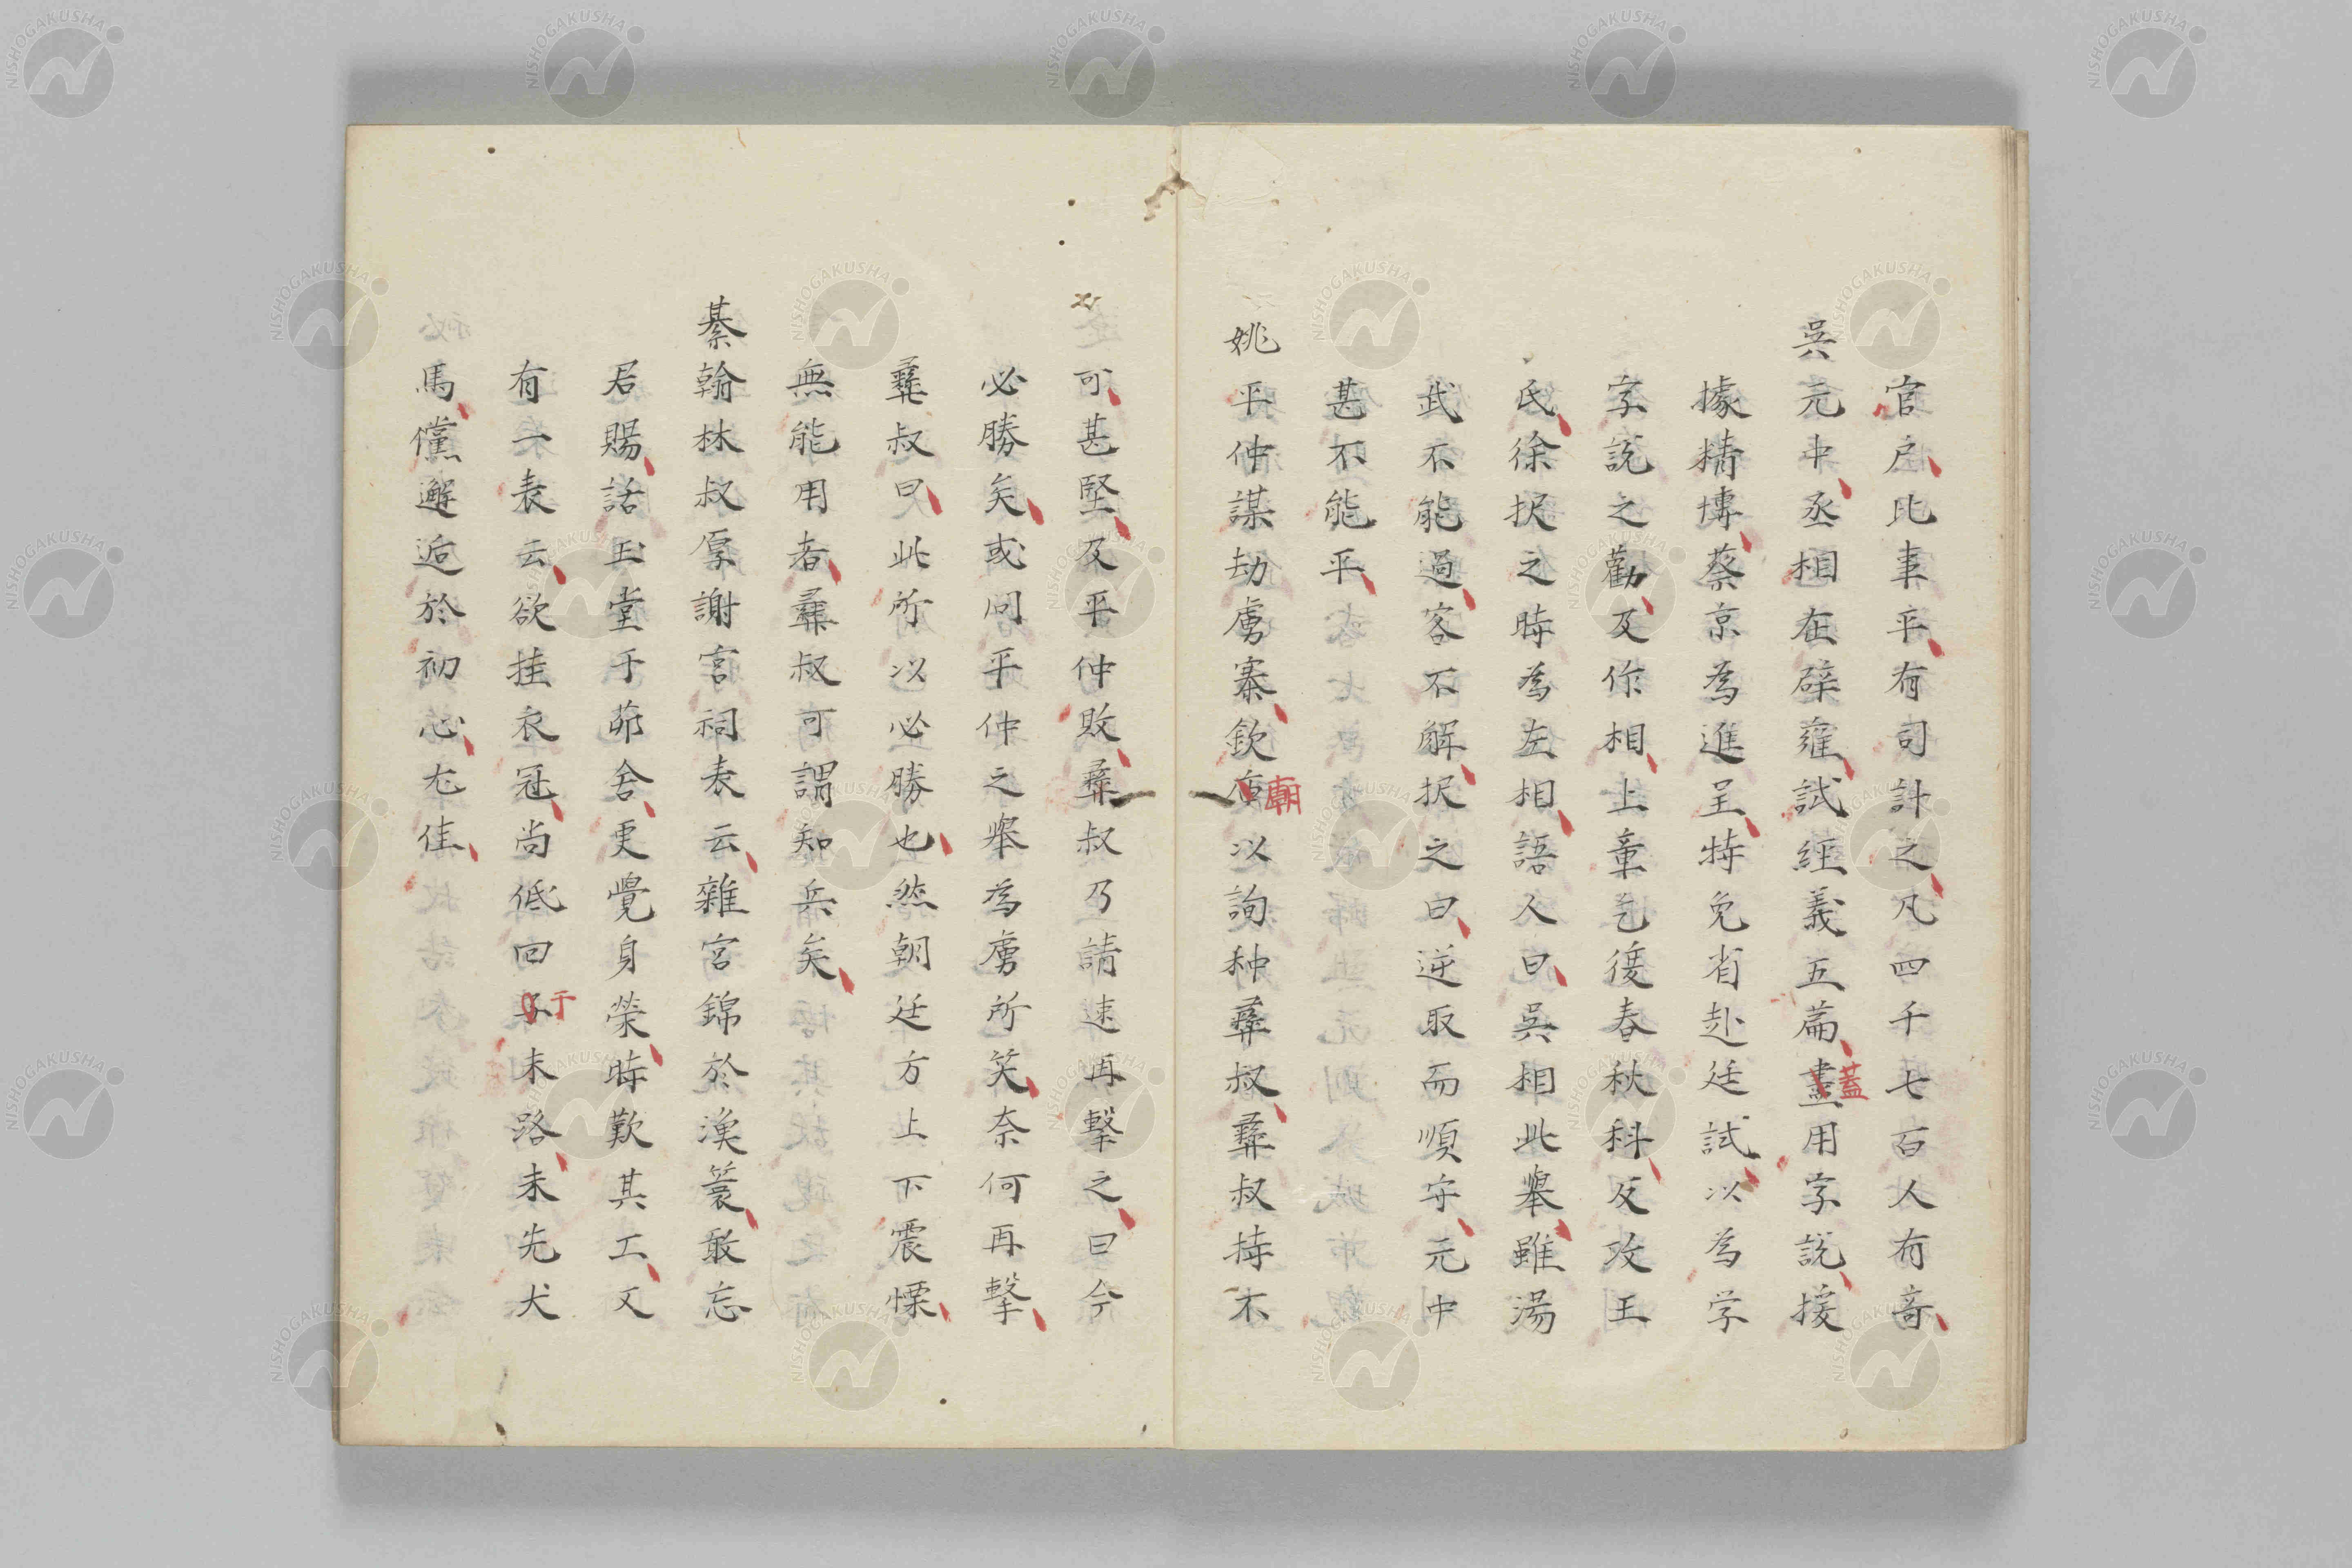 官戸比事平有司計之凡四千七百人有竒
吳元中丞相在辟雍試經義五篇盡用字說援
蓋
據精博蔡京為進呈特免省赴廷試以為学
字說之勸及作相上章乞復春秋科反攻王
氏徐択之時為左相語人曰吳相此舉雖湯
武不能過客不解択之曰逆取而順守元中
甚不能平
姚平仲謀劫虜寨欽庙以詢种彞叔彞叔持不
廟
可甚堅及平仲敗彞叔乃請速再擊之曰今
必勝矣或问平仲之舉為虜所笑奈何再擊
彞叔曰此所以必勝也然朝廷方上下震慄
無能用者彞叔可謂知兵矣
綦翰林叔厚謝宮祠表云雜宮錦於漁簑敢忘
君賜話玉堂于茆舍更覺身榮時歎其工又
有一表云欲挂衣冠尚低回子末路未先犬
于
馬儻邂逅於初心尤佳
NISHOGAKUSHA